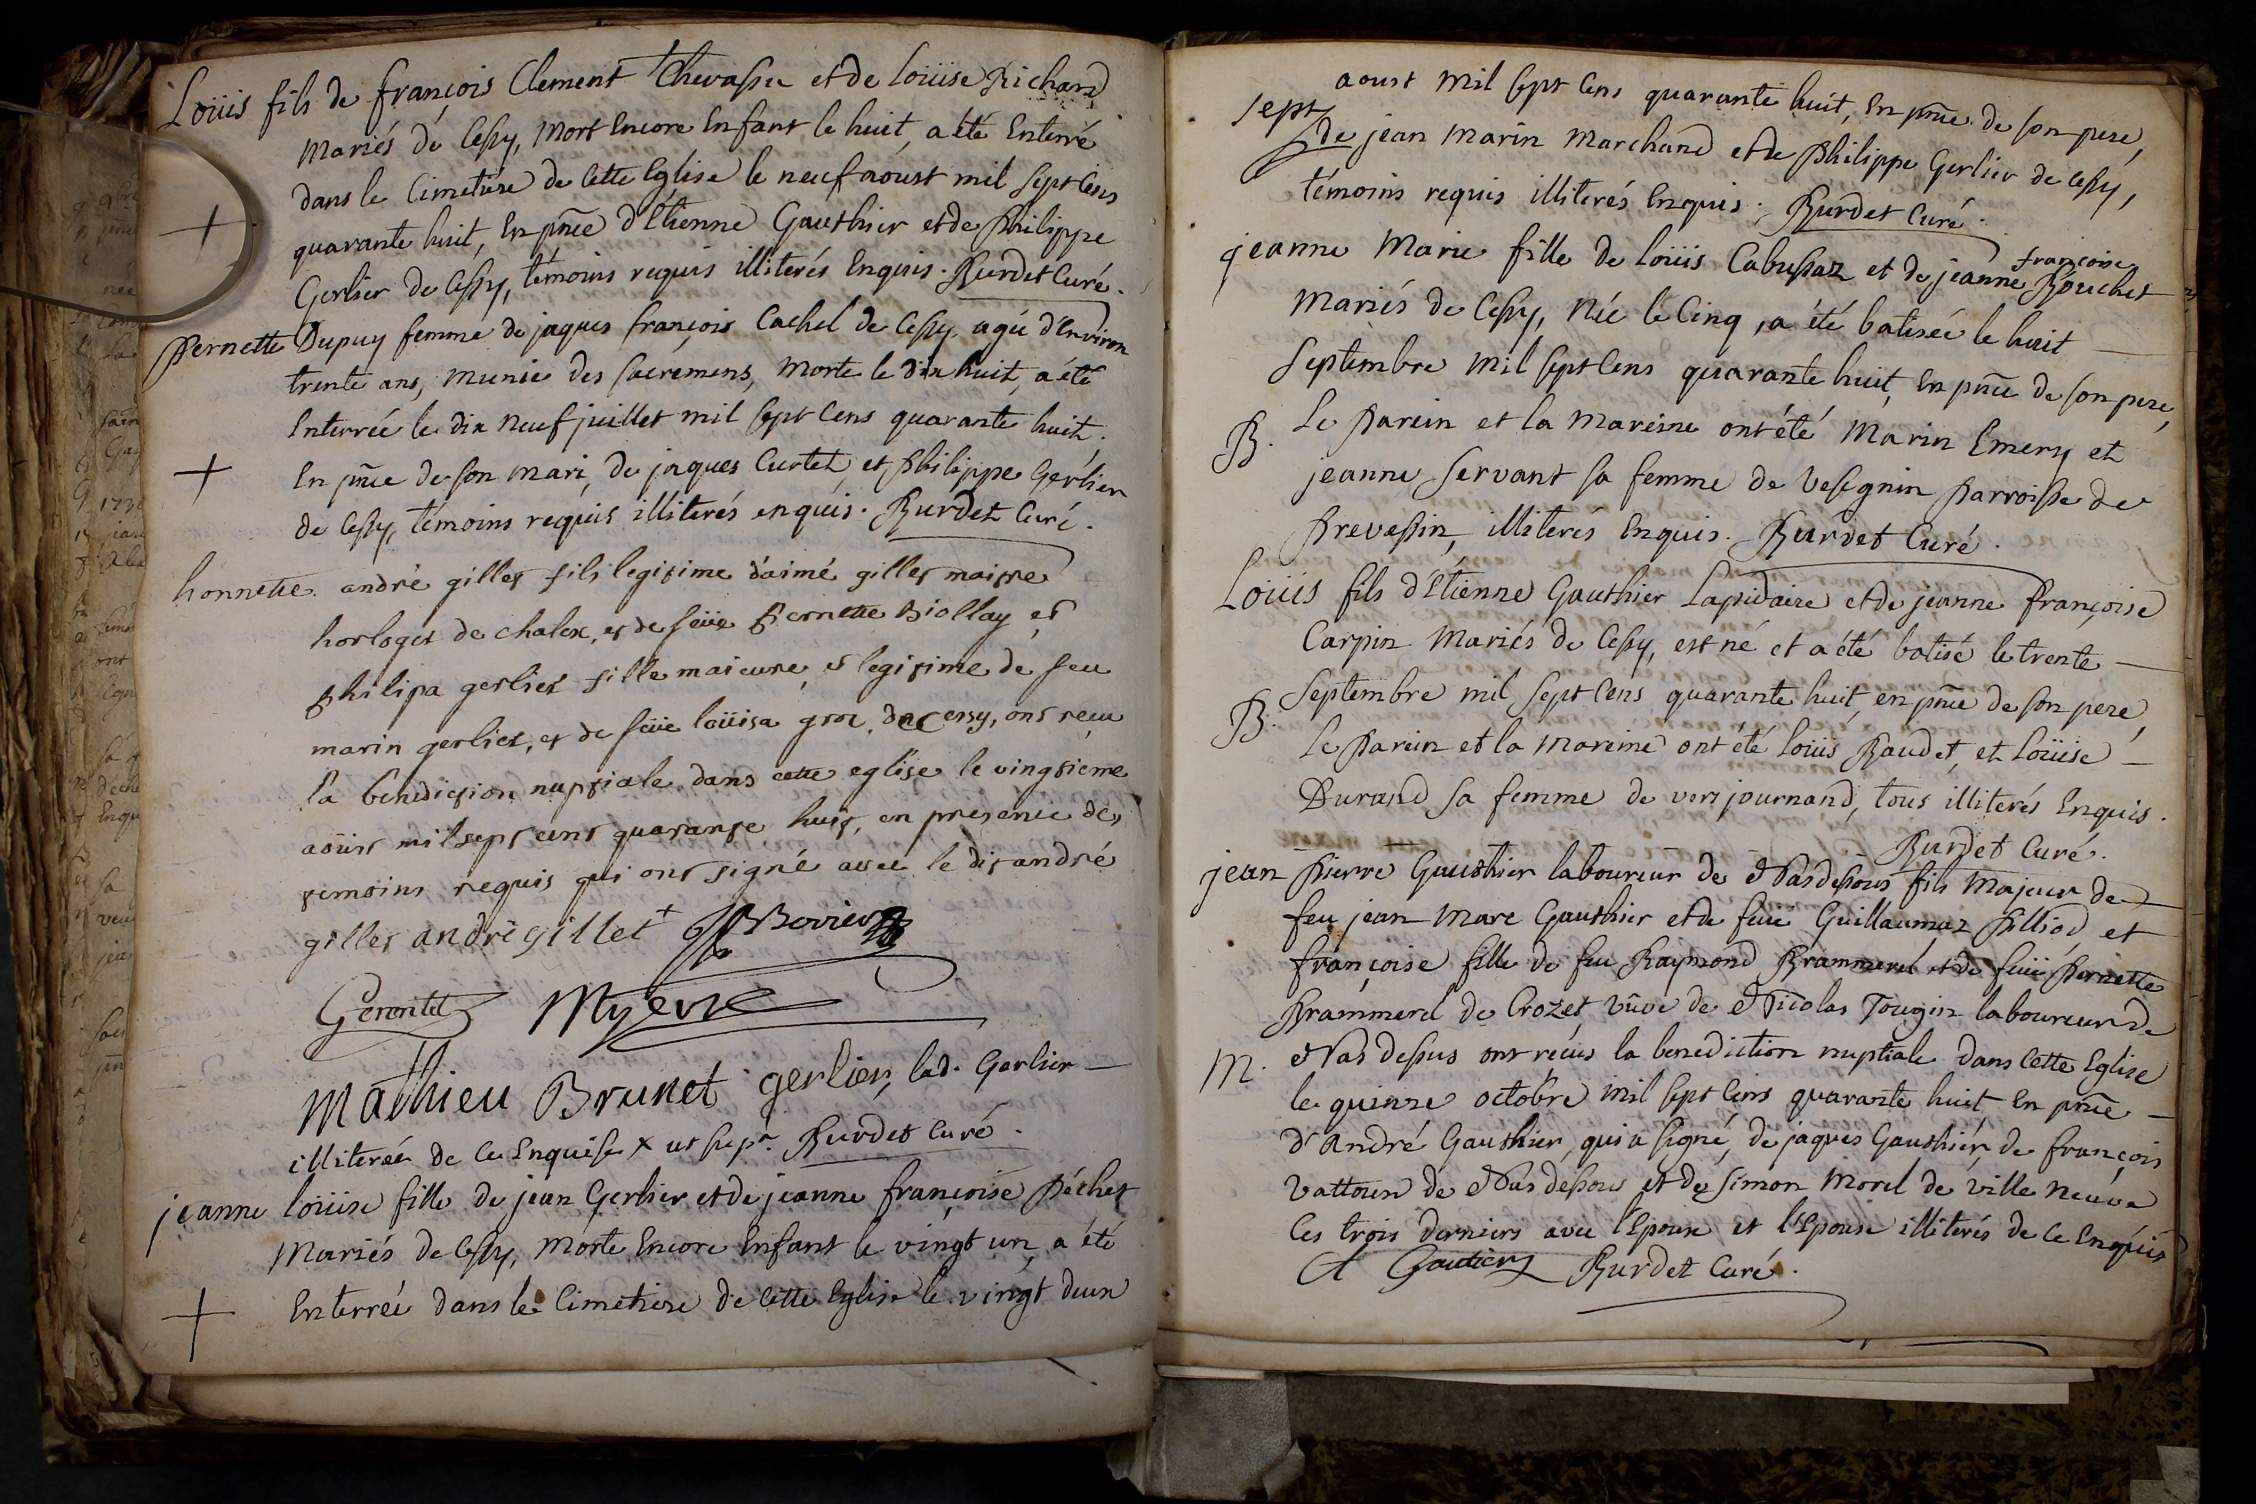 Loüis fils de françois Clement Chevassu et de Loüise Richard
Mariés de Cessy, mort Encore Enfant le huit, a été Enterré
dans le Cimetiere de Cette Eglise le neuf aoust mil sept Cens
+
quarante huit, En pñce d'Etienne Gauthier et de Philippe
Gerlier de Cessy, témoins requis illiterés Enquis. Burdet Curé.
Pernette Dupuy femme de jaques françois Cachel de Cessy agée d'Environ
trente ans, munie des sacrémens, Morte le dix huit, a été
Enterrée le dix neuf juillet mil sept Cens quarante huit.
+
En pñce de son mari, de jaques Curtet, et Philippe Gerlier
de Cessy, témoins requis illiterés enquis. Burdet Curé.
honnette andrè gilles fils legitime d'aimé gilles maitre
horloger de chalex, et de feüe pernette Biollay et
philipa gerlier fille maieure, et legitime de feu
marin gerlier, et de feüe loüisa groz, de cessy, ont reçu
la benediction nuptiale dans cette eglise le vingtieme
aoüst mil sept cent quarante huit, en presence des
temoins requis qui ont signé avec le dit andré
gilles andrè gillet + Bovier
Gerentet Myevre
Mathieu Brunet gerlier, lad. Gerlier
illiterée de Ce Enquise x ut supr. Burdet Curé.
jeanne loüise fille de jean Gerlier et de jeanne françoise Péchet
Mariés de Cessy, Morte Encore Enfant le vingt un, a été
+
Enterrée dans le Cimetiere de Cette Eglise le vingt deux
aoust mil sept Cens quarante huit, En pñce de son pere,
sept
de jean Marin Marchand et de Philippe Gerlier de Cessy,
témoins requis illiterés Enquis. Burdet Curé.
françoise
jeanne Marie fille de Loüis Cabussaz et de jeanne Bouchet
Mariés de Cessy, Née le Cinq, a été batisée le huit
Septembre Mil sept Cens quarante huit, En pñce de son pere,
B.
Le Parein et la Mareine ont été Marin Emery et
jeanne Servant sa femme de Vesegnin Parroisse de
Prevessin, illiterés Enquis. Burdet Curé.
Loüis fils d'Etienne Gauthier Lapidaire et de jeanne françoise
Carpin Mariés de Cessy, est né et a été batisé le trente
Septembre mil sept Cens quarante huit, en pñce de son pere,
B.
Le Parein et la Mareine ont été Loüis Baudet, et Loüise
Durand sa femme de versjournand, tous illiterés Enquis.
Burdet Curé.
jean Pierre Gauthier laboureur de Nas dessous fils Majeur de
feu jean Marc Gauthier et de feuë Guillaumaz Pilliod et
françoise fille de feu Raymond Brammerel et de feuë Pernette
Brammerel de Crozet vûve de Nicolas Tougin laboureur de
M.
Nas dessus ont reçus la benediction nuptiale dans Cette Eglise
le quinze octobre mil sept Cens quarante huit En pñce
d'André Gauthier, qui a signé, de jaques Gauthier, de françois
Vattoux de Nas dessous et de Simon Morel de ville neuve
Ces trois derniers avec l'Epoux et l'Epouse illiterés de Ce Enquis
A Gautier Burdet Curé.